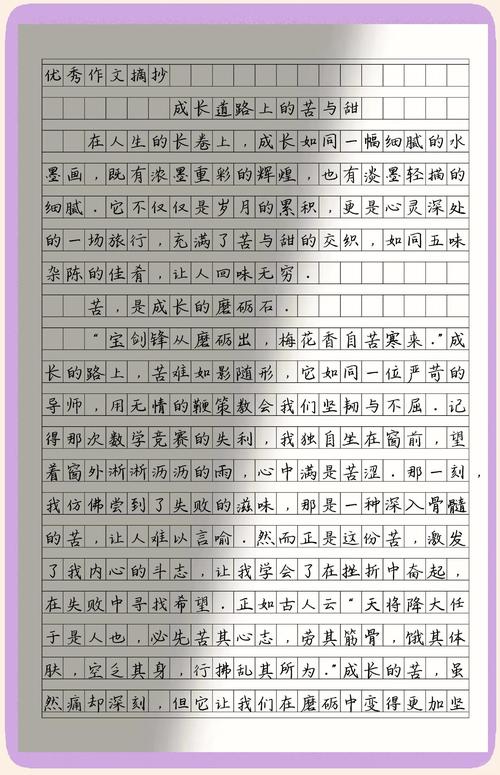 优秀作文摘抄
成长道路上的苦与甜
在人生的长卷上，成长如同一幅细腻的水
墨画，既有浓墨重彩的辉煌，也有淡墨轻描的
细腻．它不仅仅是岁月的累积，更是心灵深处
的一场旅行，充满了苦与甜的交织，如同五味
杂陈的佳肴，让人回味无穷．
苦，是成长的磨砺石．
“宝剑锋从磨砺出，梅花香自苦寒来．”成
长的路上，苦难如影随形，它如同一位严苛的
导师，用无情的鞭策教会我们坚韧与不屈．记
得那次数学竞赛的失利，我独自坐在窗前，望
着窗外淅淅沥沥的雨，心中满是苦涩．那一刻，
我仿佛尝到了失败的滋味，那是一种深入骨髓
的苦，让人难以言喻．然而正是这份苦，激发
了我内心的斗志，让我学会了在挫折中奋起，
在失败中寻找希望．正如古人云“天将降大任
于是人也，必先苦其心志，劳其筋骨，饿其体
肤，空乏其身，行拂乱其所为．”成长的苦，虽
然痛却深刻，但它让我们在磨砺中变得更加坚